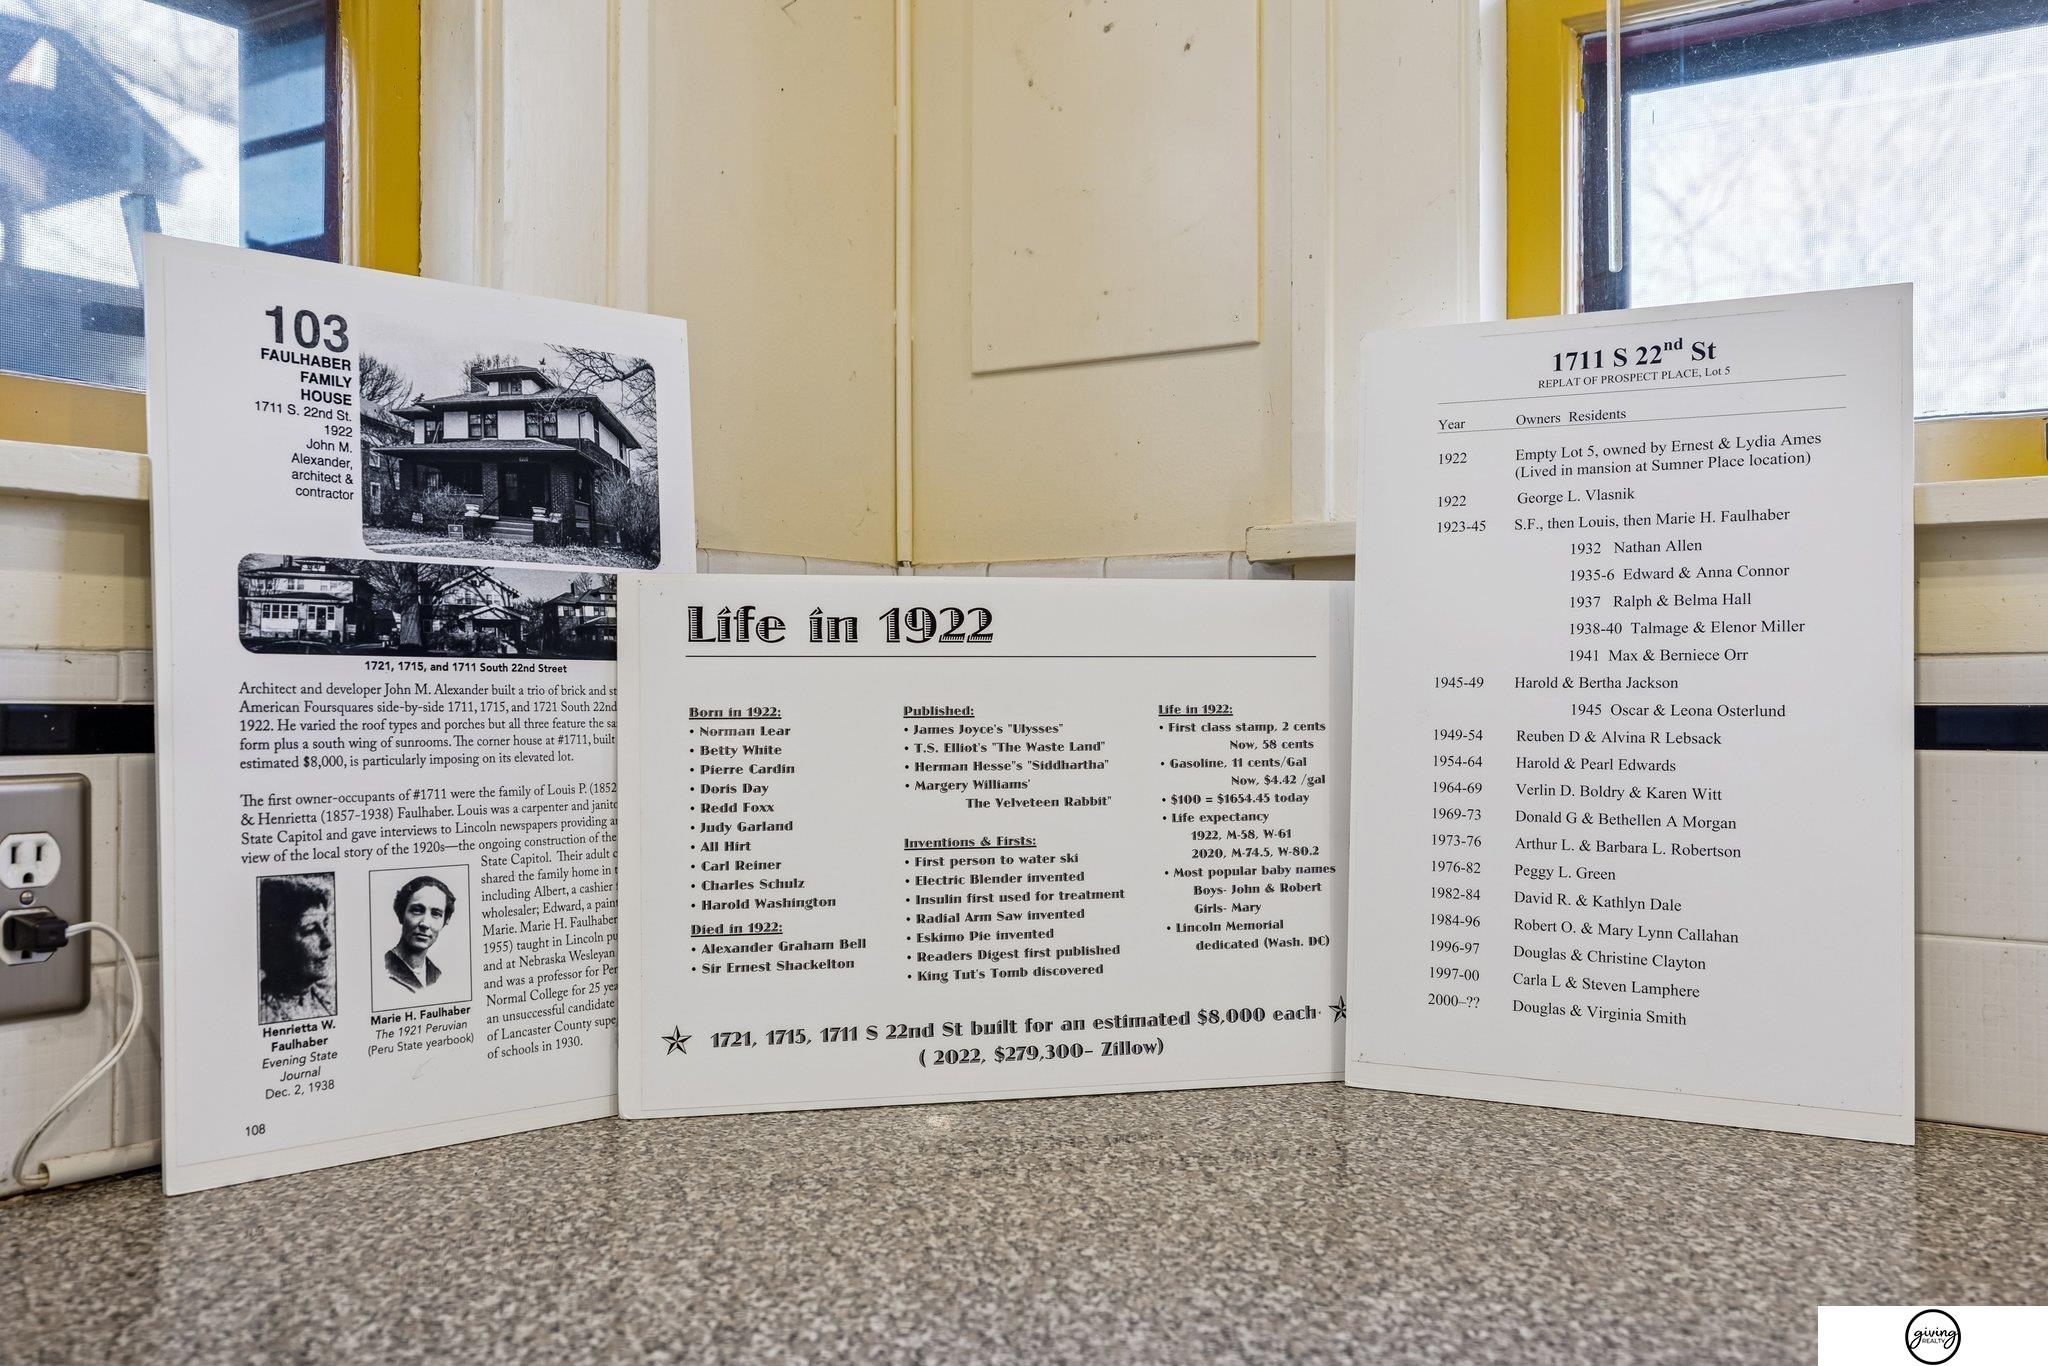 103
FAULHABER
FAMILY
HOUSE
1711 S. 22nd St.
1922
John M.
Alexander,
architect &
contractor
1721, 1715, and 1711 South 22nd Street
Architect and developer John M. Alexander built a trio of brick and
American Foursquares side-by-side 1711, 1715, and 1721 South 22nd
1922. He varied the roof types and porches but all three feature the
form plus a south wing of sunrooms. The corner house at #1711, built
estimated $8,000, is particularly imposing on its elevated lot.
The first owner-occupants of #1711 were the family of Louis P. (1852
& Henrietta (1857-1938) Faulhaber. Louis was a carpenter and
State Capitol and gave interviews to Lincoln newspapers providing
view of the local story of the 1920s—the ongoing construction of the
State Capitol. Their adult
shared the family home in
including Albert, a cashier
wholesaler; Edward, a
Marie. Marie H. Faulhaber
1955) taught in Lincoln
and at Nebraska Wesleyan
and was a professor for
Normal College for 25
an unsuccessful candidate
of Lancaster County
of schools in 1930.
Henrietta W.
Faulhaber
Evening State
Journal
Dec. 2, 1938
Marie H. Faulhaber
The 1921 Peruvian
(Peru State yearbook)
108
Life in 1922
Born in 1922:
• Norman Lear
• Betty White
• Pierre Cardin
• Doris Day
• Redd Foxx
• Judy Garland
• All Hirt
• Carl Reiner
• Charles Schulz
• Harold Washington
Died in 1922:
• Alexander Graham Bell
• Sir Ernest Shackelton
Published:
• James Joyce's "Ulysses"
• T.S. Elliot's "The Waste Land"
• Herman Hesse"s "Siddhartha"
• Margery Williams'
The Velveteen Rabbit"
Inventions & Firsts:
• First person to water ski
• Electric Blender invented
• Insulin first used for treatment
• Radial Arm Saw invented
• Eskimo Pie invented
• Readers Digest first published
• King Tut's Tomb discovered
Life in 1922:
• First class stamp, 2 cents
Now, 58 cents
• Gasoline, 11 cents/Gal
Now, $4.42 /gal
• $100 = $1654.45 today
• Life expectancy
1922, M-58, W-61
2020, M-74.5, W-80.2
• Most popular baby names
Boys- John & Robert
Girls- Mary
• Lincoln Memorial
dedicated (Wash. DC)
1721, 1715, 1711 S 22nd St built for an estimated $8,000 each·
( 2022, $279,300- Zillow)
1711 S 22nd St
REPLAT OF PROSPECT PLACE, Lot 5
Year Owners Residents
1922 Empty Lot 5, owned by Ernest & Lydia Ames
(Lived in mansion at Sumner Place location)
1922 George L. Vlasnik
1923-45 S.F., then Louis, then Marie H. Faulhaber
1932 Nathan Allen
1935-6 Edward & Anna Connor
1937 Ralph & Belma Hall
1938-40 Talmage & Elenor Miller
1941 Max & Berniece Orr
1945-49 Harold & Bertha Jackson
1945 Oscar & Leona Osterlund
1949-54 Reuben D & Alvina R Lebsack
1954-64 Harold & Pearl Edwards
1964-69 Verlin D. Boldry & Karen Witt
1969-73 Donald G & Bethellen A Morgan
1973-76 Arthur L. & Barbara L. Robertson
1976-82 Peggy L. Green
1982-84 David R. & Kathlyn Dale
1984-96 Robert O. & Mary Lynn Callahan
1996-97 Douglas & Christine Clayton
1997-00 Carla L & Steven Lamphere
2000-?? Douglas & Virginia Smith
giving
REALTY